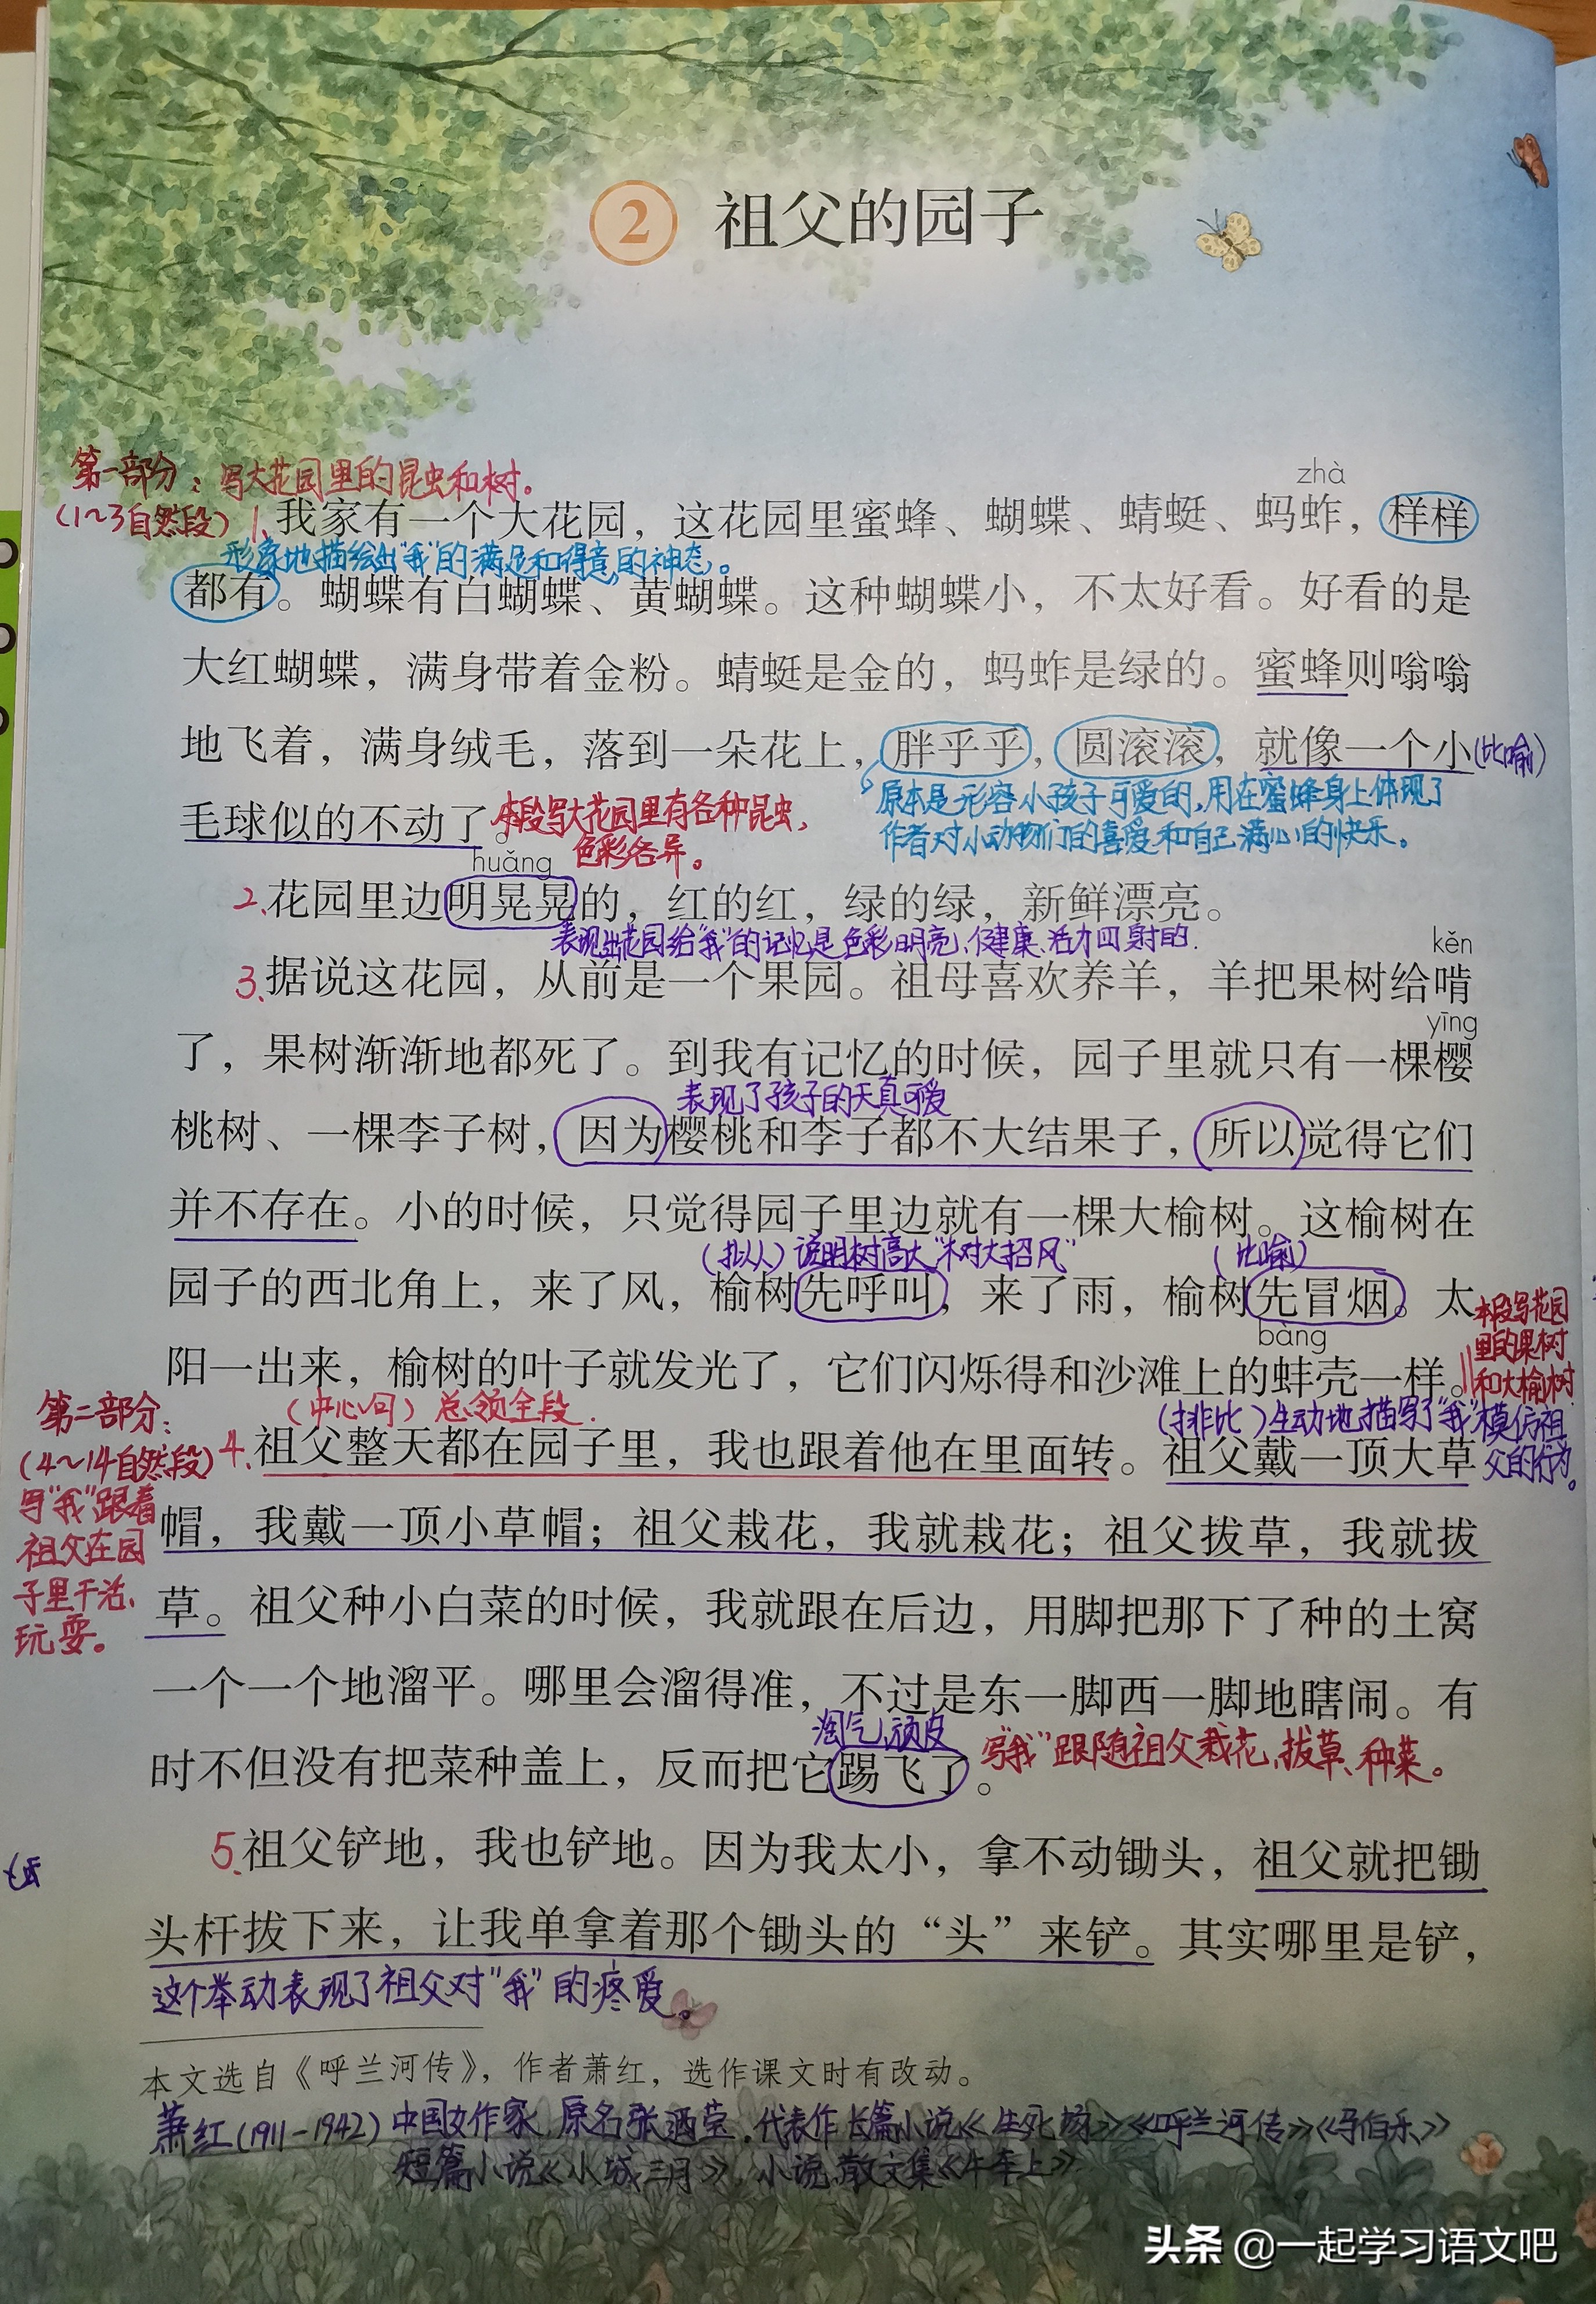 2 祖父的园子
第一部分：写大花园里的昆虫和树。
zhà
(1~3自然段) 1、我家有一个大花园，这花园里蜜蜂、蝴蝶、蜻蜓、蚂蚱，样样
形象地描绘出“我”的满足和得意的神态。
都有。蝴蝶有白蝴蝶、黄蝴蝶。这种蝴蝶小，不太好看。好看的是
大红蝴蝶，满身带着金粉。蜻蜓是金的，蚂蚱是绿的。蜜蜂则嗡嗡
地飞着，满身绒毛，落到一朵花上，胖乎乎，圆滚滚，就像一个小(比喻)
原本是形容小孩子可爱的，用在蜜蜂身上体现了
作者对小动物们的喜爱和自己满心的快乐。
毛球似的不动了。本段写大花园里有各种昆虫，
色彩各异。
huǎng
2、花园里边明晃晃的，红的红，绿的绿，新鲜漂亮。
表现出花园给“我”的记忆是色彩明亮、健康、活力四射的.
kěn
3、据说这花园，从前是一个果园。祖母喜欢养羊，羊把果树给啃
yīng
了，果树渐渐地都死了。到我有记忆的时候，园子里就只有一棵樱
表现了孩子的天真可爱
桃树、一棵李子树，因为樱桃和李子都不大结果子，所以觉得它们
并不存在。小的时候，只觉得园子里边就有一棵大榆树。这榆树在
(拟人) 说明树高大“树大招风” (比喻)
园子的西北角上，来了风，榆树先呼叫，来了雨，榆树先冒烟。太
bàng
阳一出来，榆树的叶子就发光了，它们闪烁得和沙滩上的蚌壳一样。
本段写花园
里的果树
和大榆树
第二部分：
(4~14自然段)
写“我”跟着
祖父在园
子里干活、
玩耍。
(中心句) 总领全段.
(排比) 生动地描写了“我”模仿祖
父的行为。
4、祖父整天都在园子里，我也跟着他在里面转。祖父戴一顶大草
帽，我戴一顶小草帽；祖父栽花，我就栽花；祖父拔草，我就拔
草。祖父种小白菜的时候，我就跟在后边，用脚把那下了种的土窝
一个一个地溜平。哪里会溜得准，不过是东一脚西一脚地瞎闹。有
淘气、顽皮
时不但没有把菜种盖上，反而把它踢飞了。写“我”跟随祖父栽花、拔草、种菜。
5、祖父铲地，我也铲地。因为我太小，拿不动锄头，祖父就把锄
头杆拔下来，让我单拿着那个锄头的“头”来铲。其实哪里是铲，
这个举动表现了祖父对“我”的疼爱。
本文选自《呼兰河传》，作者萧红，选作课文时有改动。
萧红(1911-1942) 中国女作家，原名张廼莹。代表作长篇小说《生死场》《呼兰河传》《马伯乐》
短篇小说《小城三月》，小说、散文集《牛车上》.
4
头条 @一起学习语文吧